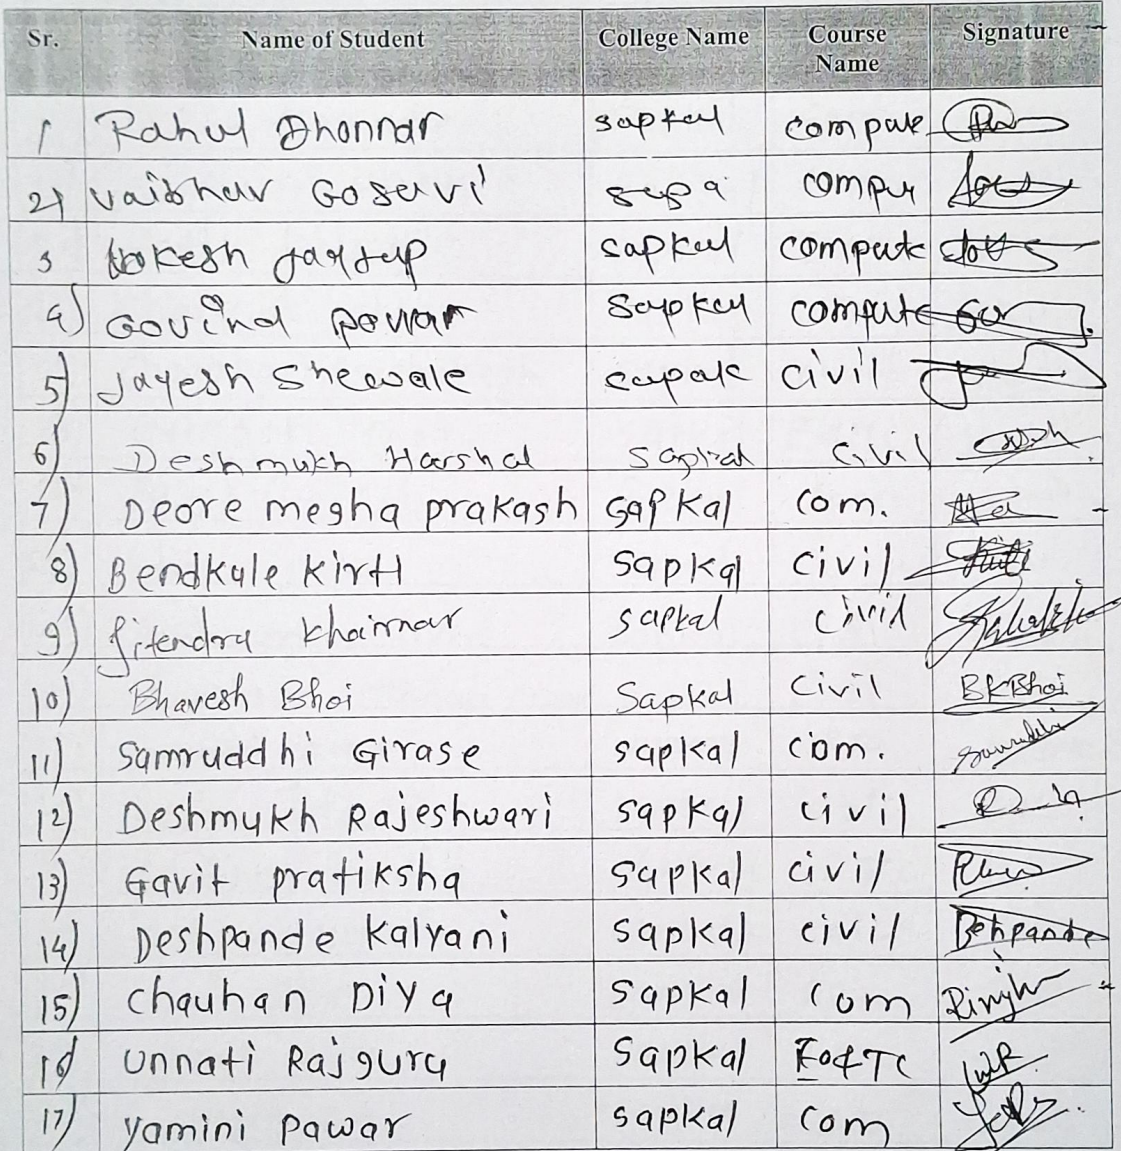 Sr. Name of Student College Name Course Name Signature
1 Rahul Dhonnar sapkal compute
2) Vaibhav Gosavi sapa compu
3 sapkal compute
4) Govind Pawar Sapkal compute
5) Jayesh Shewale capak civil
6) Deshmukh Harshal Sapkal civil
7) Deore megha prakash sapkal com.
8) Bendkule kirti sapkal civil
9) Jitendra Khairnar sapkal civil
10) Bhavesh Bhoi Sapkal Civil BKBhoi
11) Samruddhi Girase sapkal com.
12) Deshmukh Rajeshwari sapkal civil
13) Gavit pratiksha sapkal civil
14) Deshpande Kalyani sapkal civil Dehpande
15) Chauhan Diya sapkal com
16) Unnati Rajguru sapkal E&TC
17) Yamini Pawar sapkal com